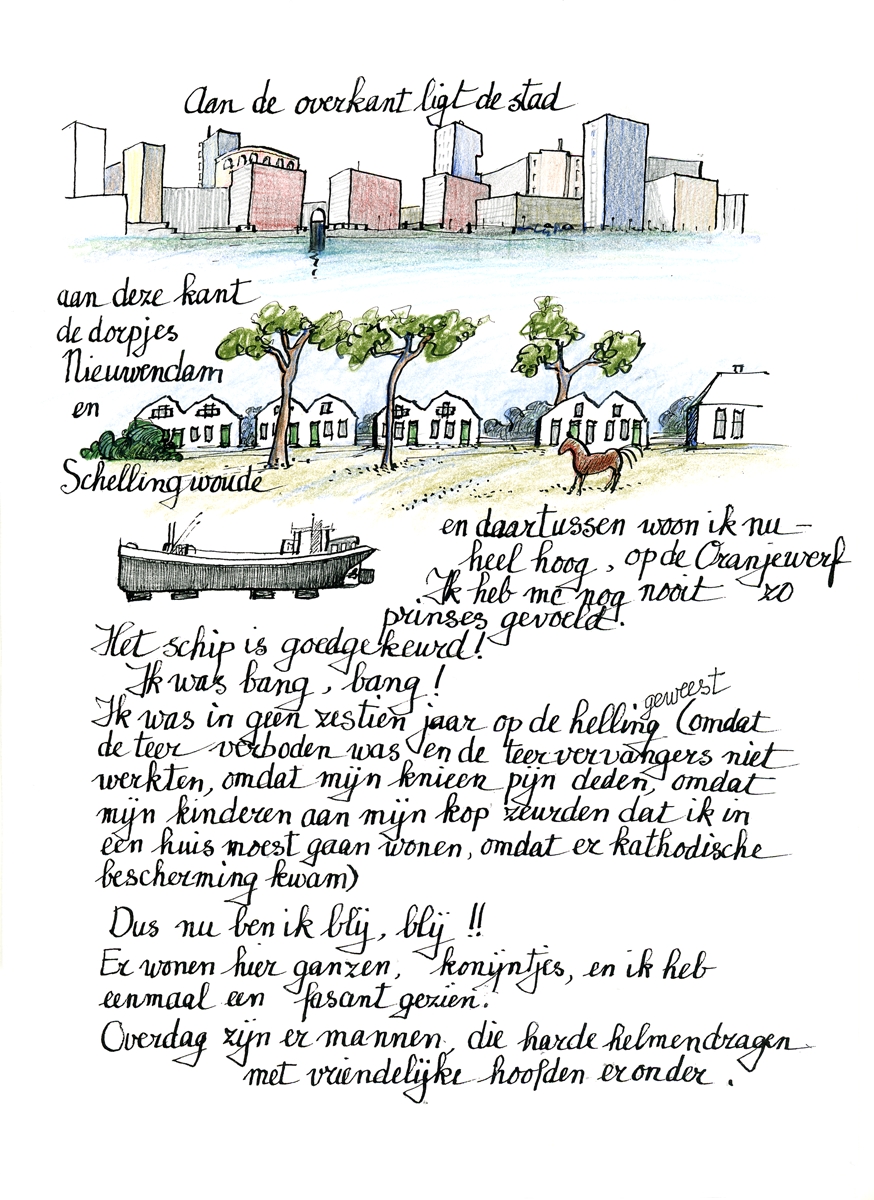 Aan de overkant ligt de stad
aan deze kant
de dorpjes
Nieuwendam
en
Schellingwoude
en daartussen woon ik nu –
heel hoog, op de Oranjewerf
Ik heb me nog nooit zo
prinses gevoeld.
Het schip is goedgekeurd!
Ik was bang, bang!
Ik was in geen zestien jaar op de helling geweest (omdat
de teer verboden was en de teervervangers niet
werkten, omdat mijn knieen pijn deden, omdat
mijn kinderen aan mijn kop zeurden dat ik in
een huis moest gaan wonen, omdat er kathodische
bescherming kwam)
Dus nu ben ik blij, blij !!
Er wonen hier ganzen, konijntjes, en ik heb
eenmaal een fasant gezien.
Overdag zijn er mannen, die harde helmen dragen
met vriendelijke hoofden eronder.